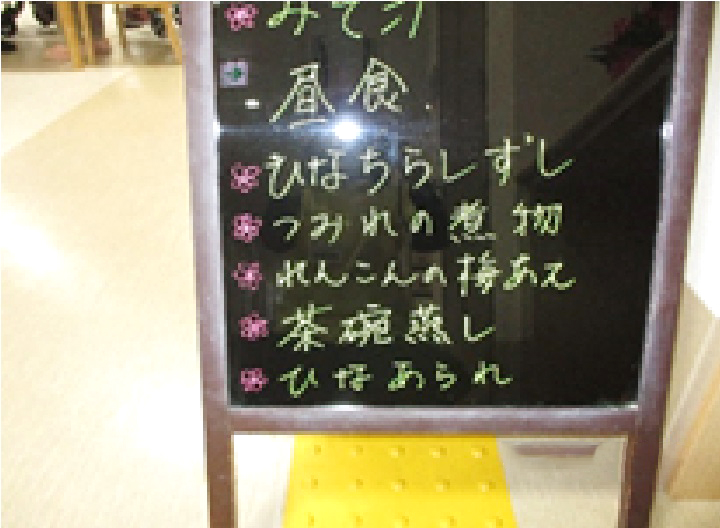 みそ汁
昼食
ひなちらしずし
つみれの煮物
れんこんの梅あえ
茶碗蒸し
ひなあられ